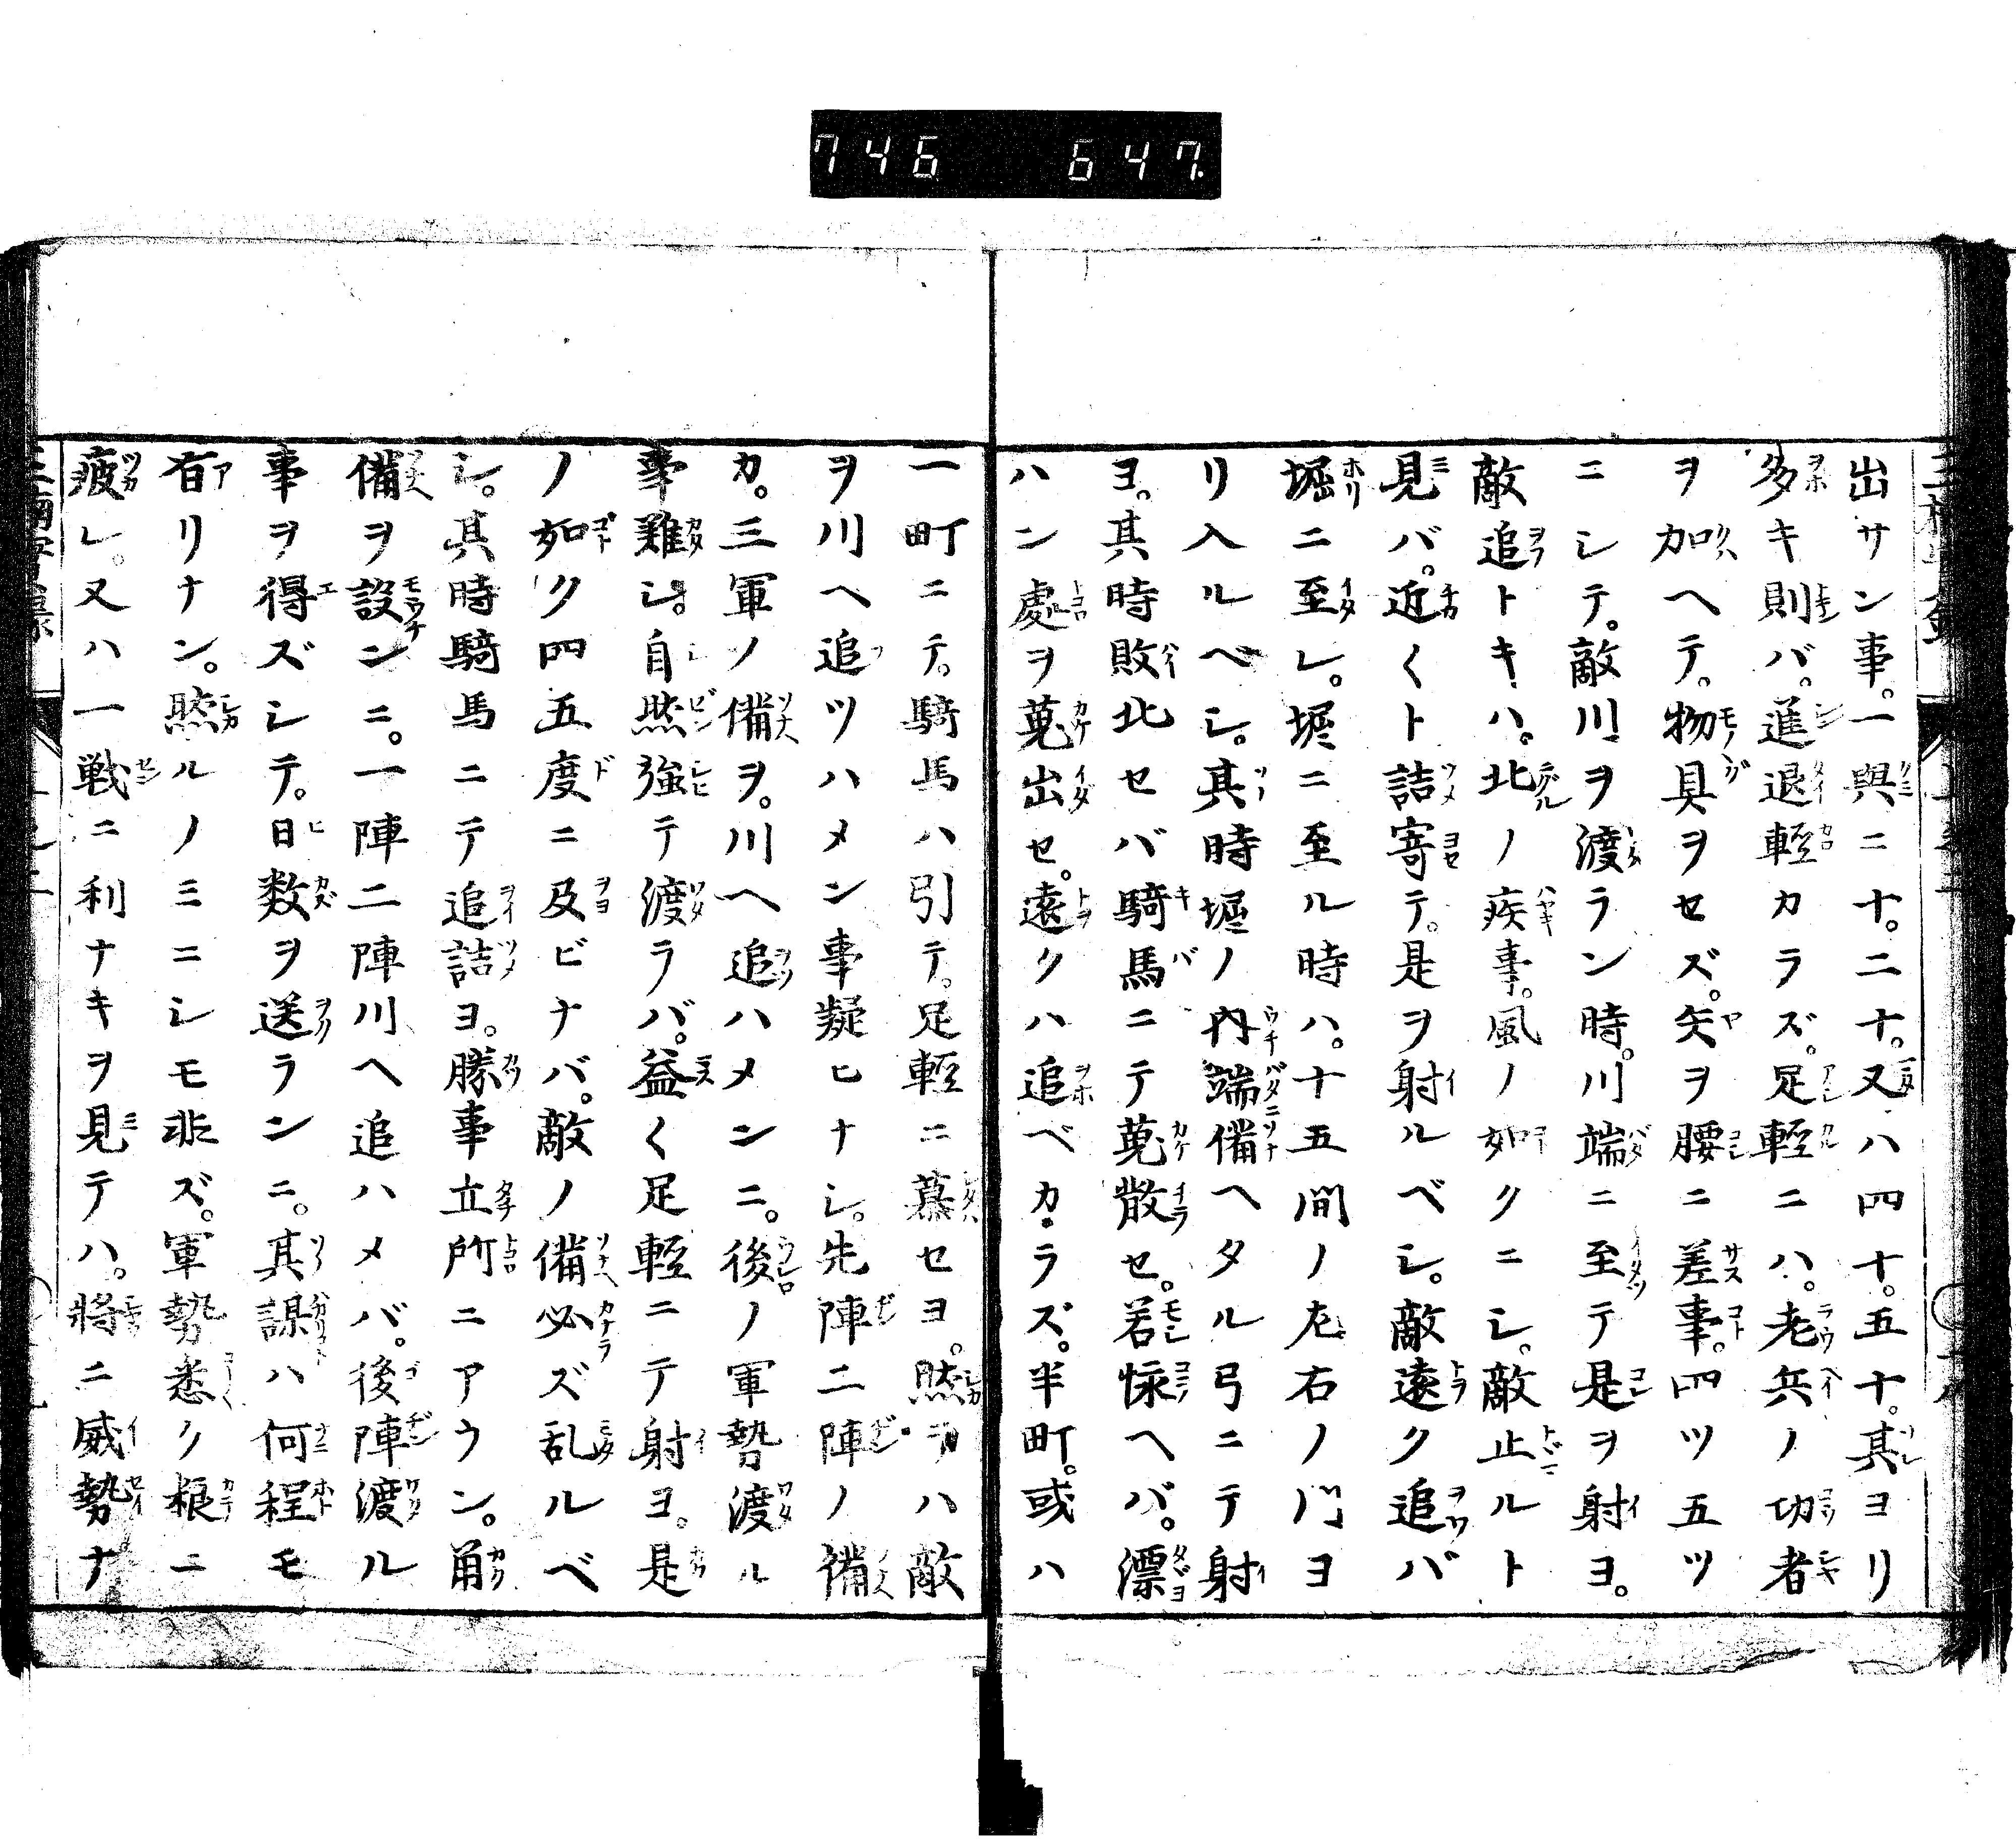 746 647.
出サン事。一與ニ十。二十。又ハ四十。五十。其ヨリ
多キ則バ。進退輕カラズ。足輕ニハ。老兵ノ功者
ヲ加ヘテ。物具ヲセズ。矢ヲ腰ニ差事。四ツ五ツ
ニシテ。敵川ヲ渡ラン時。川端ニ至テ是ヲ射ヨ。
敵追トキハ。北ノ疾事。風ノ如クニシ。敵止ルト
見バ。近くト詰寄テ。是ヲ射ルベシ。敵遠ク追バ
堀ニ至レ。堀ニ至ル時ハ。十五間ノ左右ノ門ヨ
リ入ルベシ。其時堀ノ内端備ヘタル弓ニテ射
ヨ。其時敗北セバ騎馬ニテ蒐散セ。若怺ヘバ。漂
ハン處ヲ蒐出セ。遠クハ追ベカラズ。半町。或ハ
一町ニテ。騎馬ハ引テ。足輕ニ慕セヨ。然ラハ敵
ヲ川ヘ追ツハメン事疑ヒナシ。先陣二陣ノ備
カ。三軍ノ備ヲ。川ヘ追ハメンニ。後ノ軍勢渡ル
事難シ。自然強テ渡ラバ。益く足輕ニテ射ヨ。是
ノ如ク四五度ニ及ビナバ。敵ノ備必ズ乱ルベ
シ。其時騎馬ニテ追詰ヨ。勝事立所ニアウン。角
備ヲ設ンニ。一陣二陣川ヘ追ハメバ。後陣渡ル
事ヲ得ズシテ。日数ヲ送ランニ。其謀ハ何程モ
有リナン。然ルノミニシモ非ズ。軍勢悉ク粮ニ
疲レ。又ハ一戦ニ利ナキヲ見テハ。將ニ威勢ナ